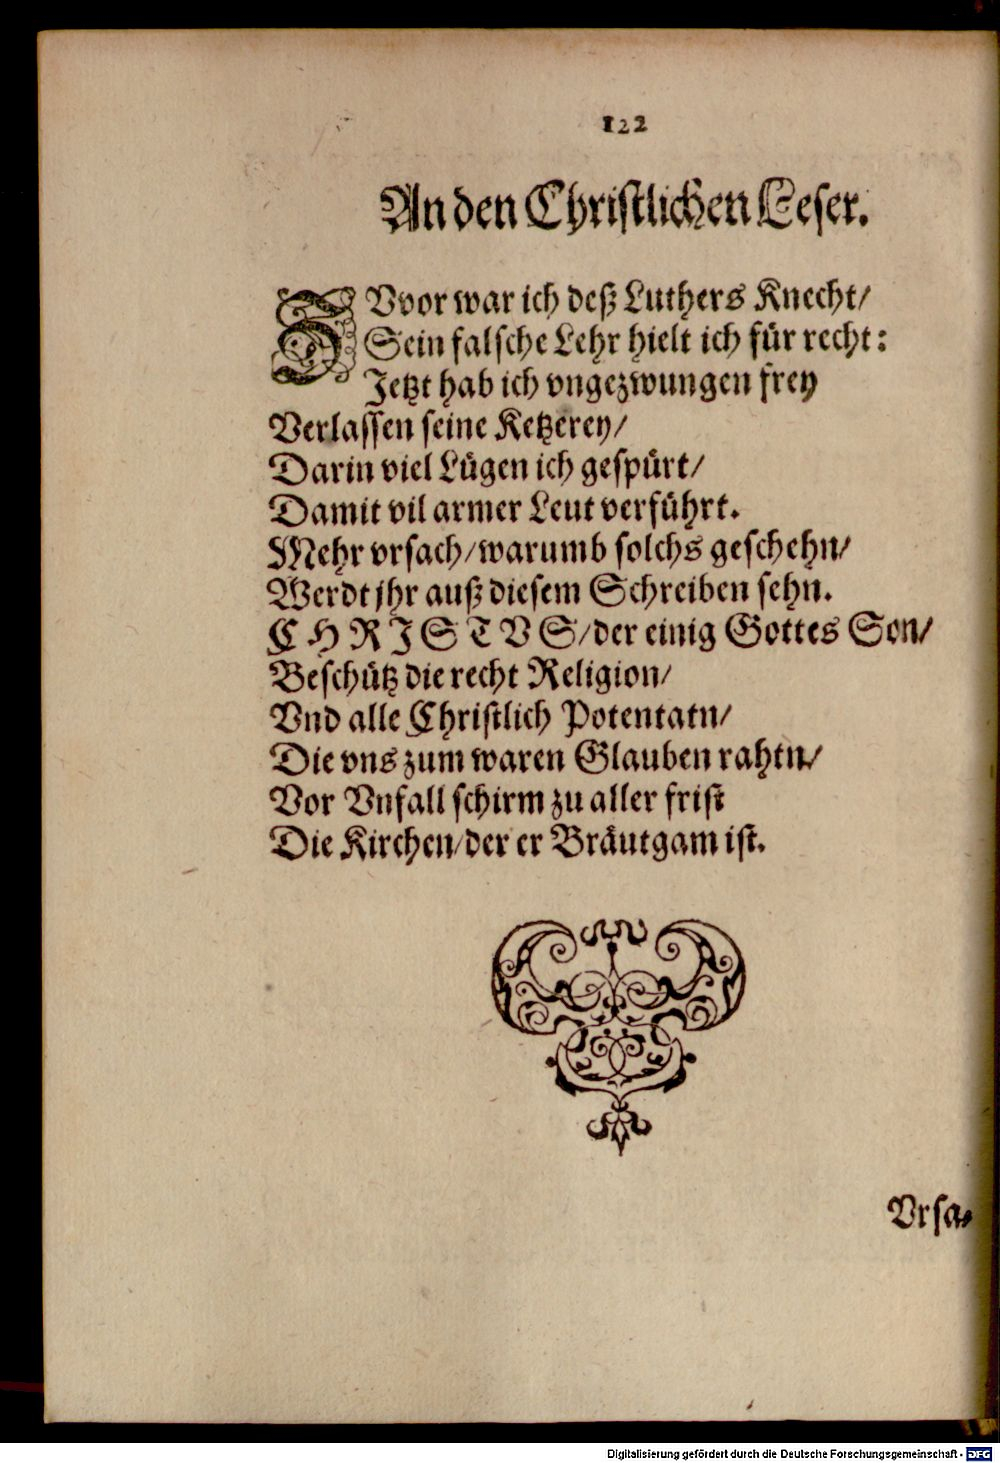 122
An den Christlichen Leser.
ZVvor war ich deß Luthers Knecht/
Sein falsche Lehr hielt ich für recht:
Jetzt hab ich vngezwungen frey
Verlassen seine Ketzerey/
Darin viel Lügen ich gespürt/
Damit vil armer Leut verführt.
Mehr vrsach/warumb solchs geschehn/
Werdt jhr auß diesem Schreiben sehn.
CHRISTVS/der einig Gottes Son/
Beschütz die recht Religion/
Vnd alle Christlich Potentatn/
Die vns zum waren Glauben rahtn/
Vor Vnfall schirm zu aller frist
Die Kirchen/der er Bräutgam ist.
Vrsa-
Digitalisierung gefördert durch die Deutsche Forschungsgemeinschaft - DFG